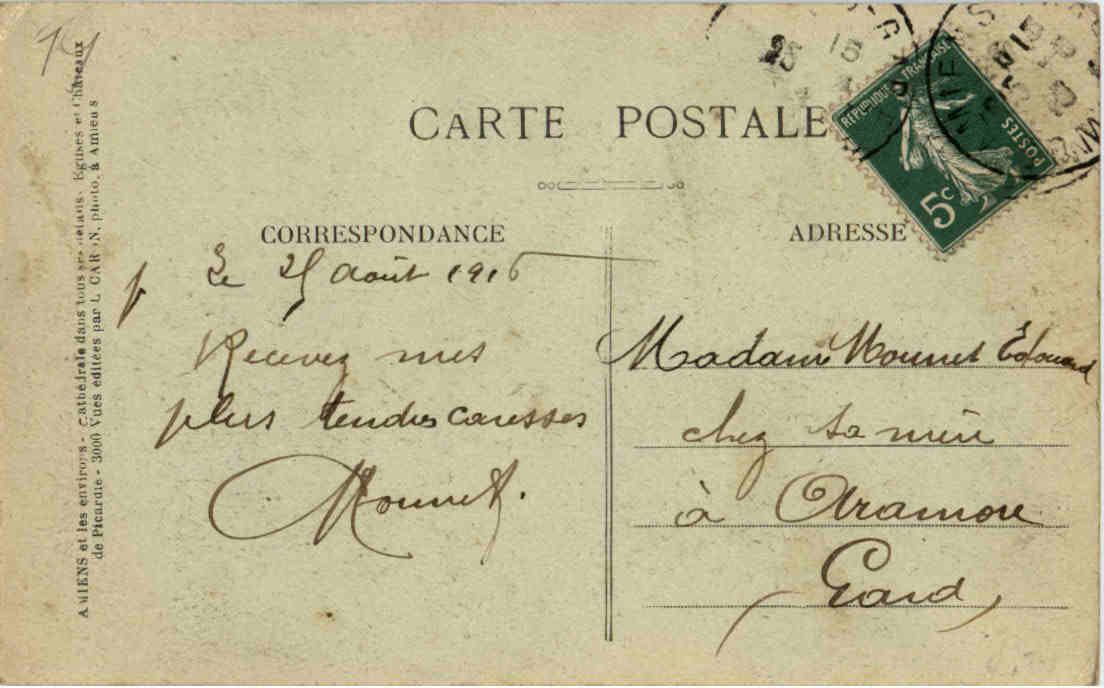 CARTE POSTALE
RÉPUBLIQUE FRANÇAISE
POSTES
5c
CORRESPONDANCE
ADRESSE
Le 25 Août 1916
Recevez mes
plus tendres caresses
Mounet.
Madame Mounet Edouard
chez sa mère
à Aramon
Gard
AMIENS et les environs - Cathédrale dans tous ses détails, Églises et Châteaux
de Picardie - 3000 Vues éditées par L. CARON, photo, à Amiens